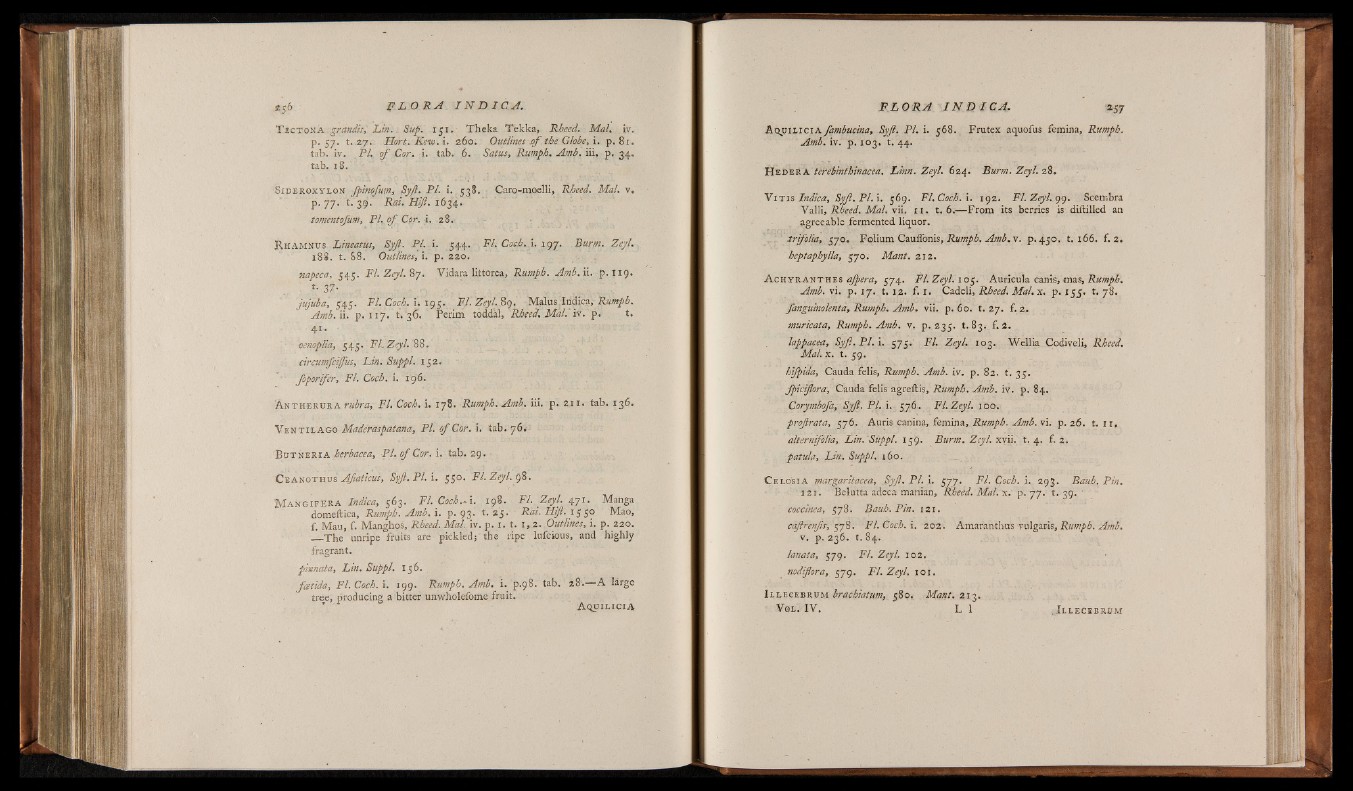 256 FLORA INDICA.
TECTONA grandis, Lin. Sup. 151. Theka Tekka, Rheed. Mal. iv.
p. 57. t. 27. Hort. Kew. i. 260. Outlines of the Globe, i. p. 81.
tab. iv. Pl. of Cor. i. tab. 6. Satus, Rumph. Amb. iii. p. 34.
tab. 18.
SIDEROXYLON ſpinoſum, Syſt. Pl. i. 538. Caro-moelli, Rheed. Mal. v.
p. 77. t. 39. Rai. Hiſt. 1634.
tomentoſum, Pl. of Cor. i. 28.
RHAMNUS Lineatus, Syſt. Pl. i. 544. Fl. Coch. i. 197. Burm. Zeyl.
188. t. 88. Outlines, i. p. 220.
napeca. 545. Fl. Zeyl. 87. Vidara littorea, Rumph. Amb. ii. p. 119.
t. 37.
jujuba, 545. Fl. Coch. i. 195. Fl. Zeyl. 89. Malus Indica, Rumph.
Amb. ii. p. 117. t. 36. Perim toddàl, Rheed. Mal. iv. p. t.
41.
oenoplia, 545. Fl. Zeyl. 88.
circumſciſſus, Lin. Suppl. 152.
ſoporifer, Fl. Coch. i. 196.
ANTHERURA rubra, Fl. Coch. i. 178. Rumph. Amb. iii. p. 211. tab. 136.
VENTILAGO Maderaspatana, Pl. of Cor. i. tab. 76.
BUTNERIA herbacea, Pl. of Cor. i. tab. 29.
CEANOTHUS Aſiaticus, Syſt. Pl. i. 550. Fl. Zeyl. 98.
MANGIFERA Indica, 563. Fl. Coch. i. 198. Fl. Zeyl. 471. Manga
domeſtica, Rumph. Amb. i. p. 93. t. 25. Rai. Hiſt. 1550 Mao,
ſ. Mau, ſ. Manghos, Rheed. Mal. iv. p. 1. t. 1, 2. Outlines, i. p. 220.
—The unripe fruits are pickled; the ripe luſcious, and highly
fragrant.
pinnata, Lin. Suppl. 156.
fœtida, Fl. Coch. i. 199. Rumph. Amb. i. p.98. tab. 28.—A large
tree, producing a bitter unwholeſome fruit.
AQUILICIA
FLORA INDICA. 257
AQUILICIA ſambucina, Syſt. Pl. i. 568. Frutex aquoſus femina, Rumph.
Amb. iv. p. 103. t. 44.
HEDERA terebinthinacea. Linn. Zeyl. 624. Burm. Zeyl. 28.
VITIS Indica, Syſt. Pl. i. 569. Fl. Coch. i. 192. Fl. Zeyl. 99. Scembra
Valli, Rheed. Mal. vii. 11. t. 6.—From its berries is diſtilled an
agreeable fermented liquor.
trifolia, 570. Folium Cauſſonis, Rumph. Amb. v. p. 450. t. 166. f. 2.
heptaphylla, 570. Mant. 212.
ACHYRANTHES aſpera, 574. Fl. Zeyl. 105. Auricula canis, mas, Rumph.
Amb. vi. p. 17. t. 12. f. 1. Cadeli, Rheed. Mal. x. p. 155. t. 78.
ſanguinolenta, Rumph. Amb. vii. p. 60. t. 27. f. 2.
muricata, Rumph. Amb. v. p. 235. t. 83. f. 2.
lappacea, Syſt. Pl. i. 575. Fl. Zeyl. 103. Wellia Codiveli, Rheed.
Mal. x. t. 59.
hiſpida, Cauda felis, Rumph. Amb. iv. p. 82. t. 35.
ſpiciflora, Cauda felis agreſtis, Rumph. Amb. iv. p. 84.
Corymboſa, Syſt. Pl. i. 576. Fl. Zeyl. 100.
proſtrata, 576. Auris canina, femina, Rumph. Amb. vi. p. 26. t. 11.
alternifolia, Lin. Suppl. 159. Burm. Zeyl. xvii. t. 4. f. 2.
patula, Lin. Suppl. 160.
CELOSIA margaritacea, Syſt. Pl. i. 577. Fl. Coch. i. 293. Bauh. Pin.
121. Belutta adeca manian, Rheed. Mal. x. p. 77. t. 39.
coccinea, 578. Bauh. Pin. 121.
caſtrenſis, 578. Fl. Coch. i. 202. Amaranthus vulgaris, Rumph. Amb.
v. p. 236. t. 84.
lanata, 579. Fl. Zeyl. 102.
nodiflora, 579. Fl. Zeyl. 101.
ILLECEBRUM brachiatum, 580. Mant. 213.
VOL. IV. L l ILLECEBRUM